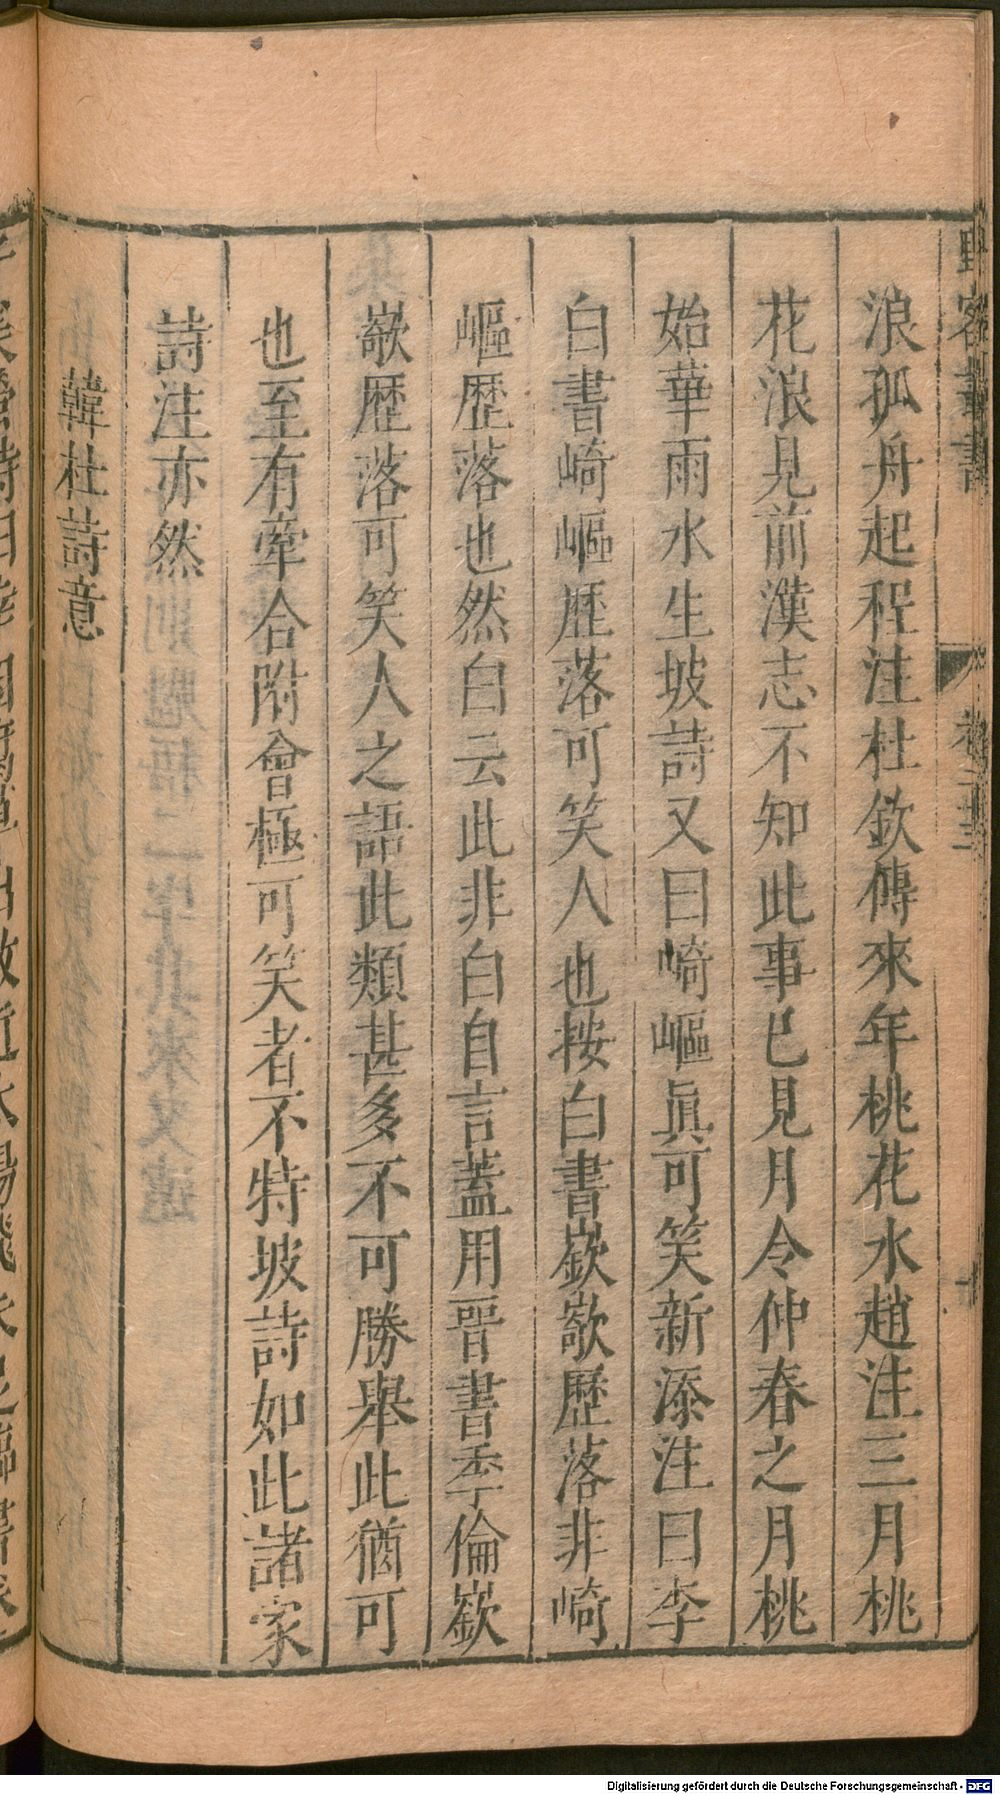 野客叢書
卷二十三
浪孤舟起程注杜欽傳來年桃花水趙注三月桃
花浪見前漢志不知此事已見月令仲春之月桃
始華雨水生坡詩又曰崎嶇眞可笑新添注曰李
白書崎嶇歷落可笑人也按白書嶔嶔歷落非崎
嶇歷落也然白云此非白自言蓋用晋書季倫嶔
嶔歷落可笑人之語此類甚多不可勝舉此猶可
也至有牽合附會極可笑者不特坡詩如此諸家
詩注亦然
韓杜詩意
Digitalisierung gefördert durch die Deutsche Forschungsgemeinschaft - DFG